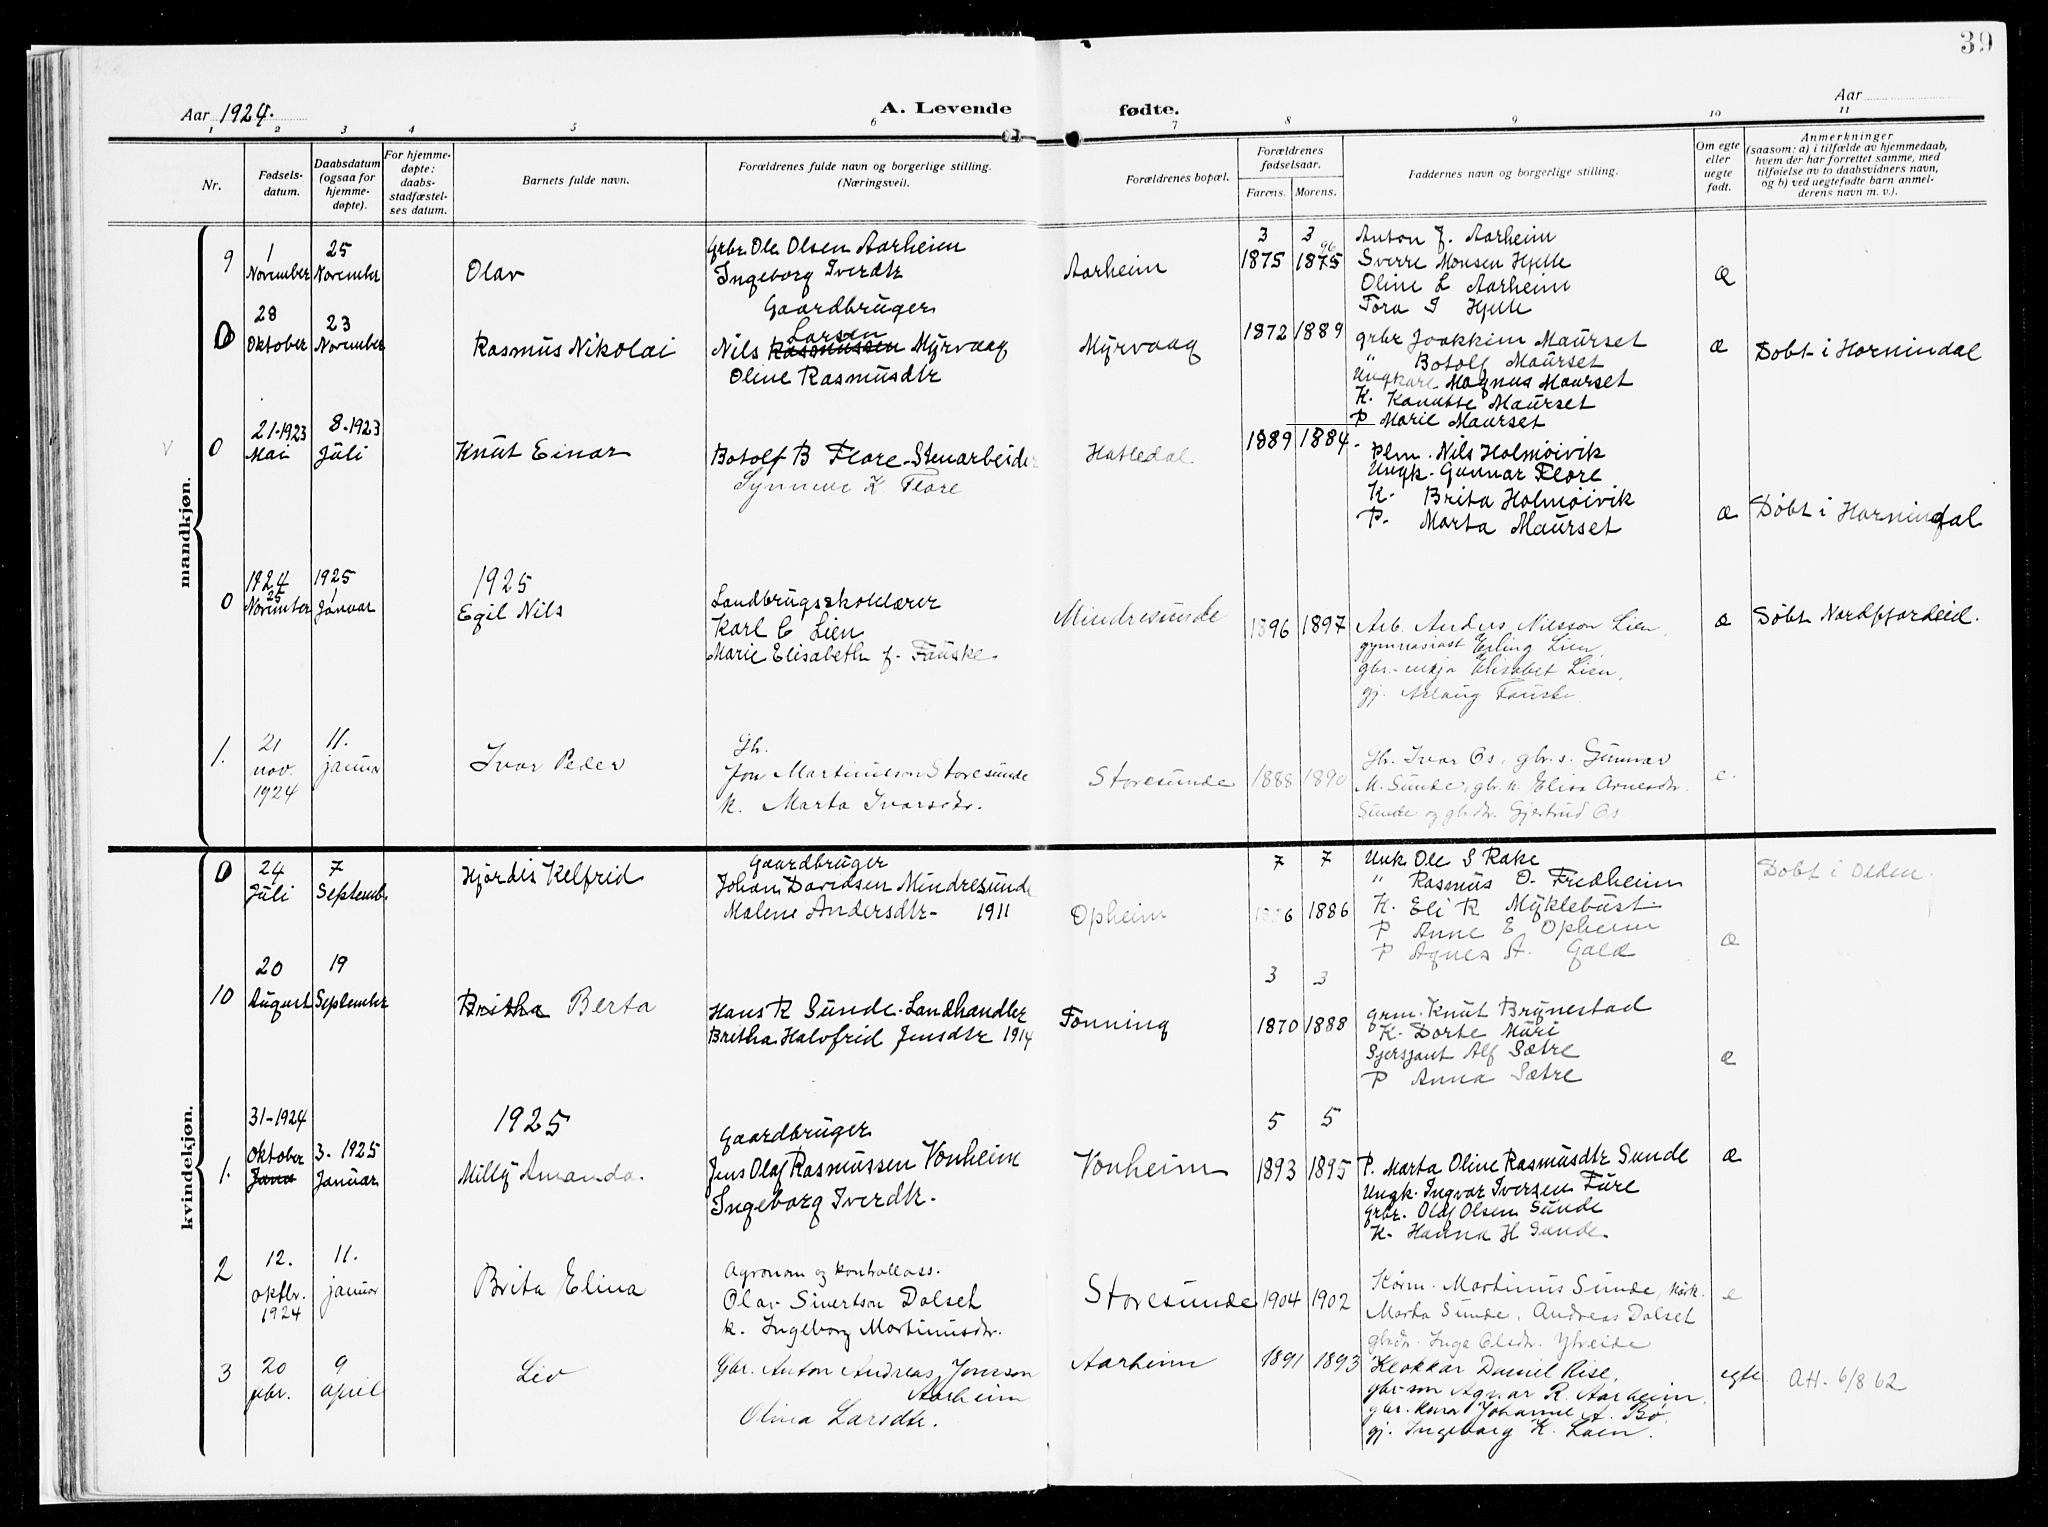 39
Aar 1924.
A. Levende fødte.
Aar
1 2 3 4 5 6 7 8 9 10 11
Nr.
Fødsels-
datum.
Daabsdatum
(ogsaa for
hjemme-
døpte).
For hjemme-
døpte:
daabs-
stadfæstel-
ses datum.
Barnets fulde navn.
Forældrenes fulde navn og borgerlige stilling.
(Næringsvei).
Forældrenes bopæl.
Forældrenes
fødselsaar.
Farens. Morens.
Faddernes navn og borgerlige stilling.
Om egte
eller
uegte
født.
Anmerkninger
(saasom: a) i tilfælde av hjemmedaab,
hvem der har forrettet samme, med
tilføielse av to daabsvidners navn,
og b) ved uegtefødte barn anmel-
derens navn m. v.).
mandkjøn.
9
1
November
25
November
Olav
Grbr Ole Olsen Aarheim
Ingeborg Iverdtr
Aarheim
3 3
1875 1875
96
Anton J. Aarheim
Sverre Monsen Hjelle
Oline L Aarheim
Tora I Hjelle
æ
0
28
Oktober
23
November
Rasmus Nikolai
Gaardbruger
Larsen
Nils Rasmussen Myrvaag
Oline Rasmusdtr
Myrvaag
1872 1889
grbr Joakkim Maurset
" Botolf Maurset
Ungkare Magnus Maurset
K. Kanutte Maurset
P Marie Maurset
æ
Døbt i Hornindal
0
21-1923
Mai
8-1923
Juli
Knut Einar
Botolf B Flore-Stenarbeider
Synneve K. Flore
Hatledal
1889 1884.
Plm. Nils Holmøivik
Ungk. Gunnar Flore
K. Brita Holmøivik
P. Marta Maurset
æ
Døbt i Hornindal
0
1924
25
November
1925
1
Januar
1925
Egil Nils
Landbrugsskolelærer
Karl C Lien
Marie Elisabeth f. Fauske.
Mindresunde
1896 1897
Arb. Anders Nilsson Lien,
gymnasiast Erling Lien,
gbr.-enkja Elisabet Lien,
gj. Aslaug Fauske.
æ
Døbt Nordfjordeid.
1.
21
nov.
1924
11.
januar
Ivar Peder
Gb.
Jon Martinusson Storesunde
k. Marta Ivarsdtr.
Storesunde
1888 1890
Gb. Ivar Os, gbr.s. Gunnar
M. Sunde, gbr.k. Elisa Arnesdtr.
Sunde og gbrdtr. Gjertrud Os
e.
kvindekjøn.
0
24
Juli
7
Septemb.
Hjørdis Kelfrid
Gaardbruger
Johan Davidsen Mindresunde
Malene Andersdtr- 1911
Opheim
7 7
1886
Unk Ole S Rake
" Rasmus O. Fredheim
K. Eli R Myklebust.
P Anne E Opheim
P Agnes A. Gald
æ
Døbt i Olden.
10
20
August
19
September
Britha Berta
Hans R Sunde-Landhandler
Britha Halvfrid Jensdtr 1914
Tonning
3 3
1870 1888
grm. Knut Brynestad
K. Dorte Muri
Sjersjant Alf Sætre
P Anna Sætre
æ
1.
31-1924
Oktober
Janu
3.1925
Januar
1925
Milly Amanda.
Gaardbruger
Jens Olaf Rasmussen Vonheim
Ingeborg Iverdtr.
Vonheim
5 5
1893 1895
P. Marta Oline Rasmusdtr Sunde
Ungk. Ingvar Iversen Fure
Grbr. Olaf Olsen Sunde
K. Hanna H Sunde.
æ
2
12.
oktbr.
1924
11.
januar
Brita Elina
Agronom og kontrollass.
Olav Sivertson Dalset
k. Ingeborg Martinusdtr.
Storesunde
1904 1902
Kårm. Martinus Sunde, kårk.
Marta Sunde, Andreas Dalset
gbrdtr. Inga Olsdtr. Ytreide
e
3
20
febr.
9
april
Liv
Gbr. Anton Andreas Jonsson
Aarheim
Olina Larsdtr.
Aarheim
1891 1893
Klokkar Daniel Rise,
gbr-son Agnar R. Aarheim,
gbr. kona Johanne A. Bø,
gj. Ingeborg K. Loen.
egte
AH. 6/8 62